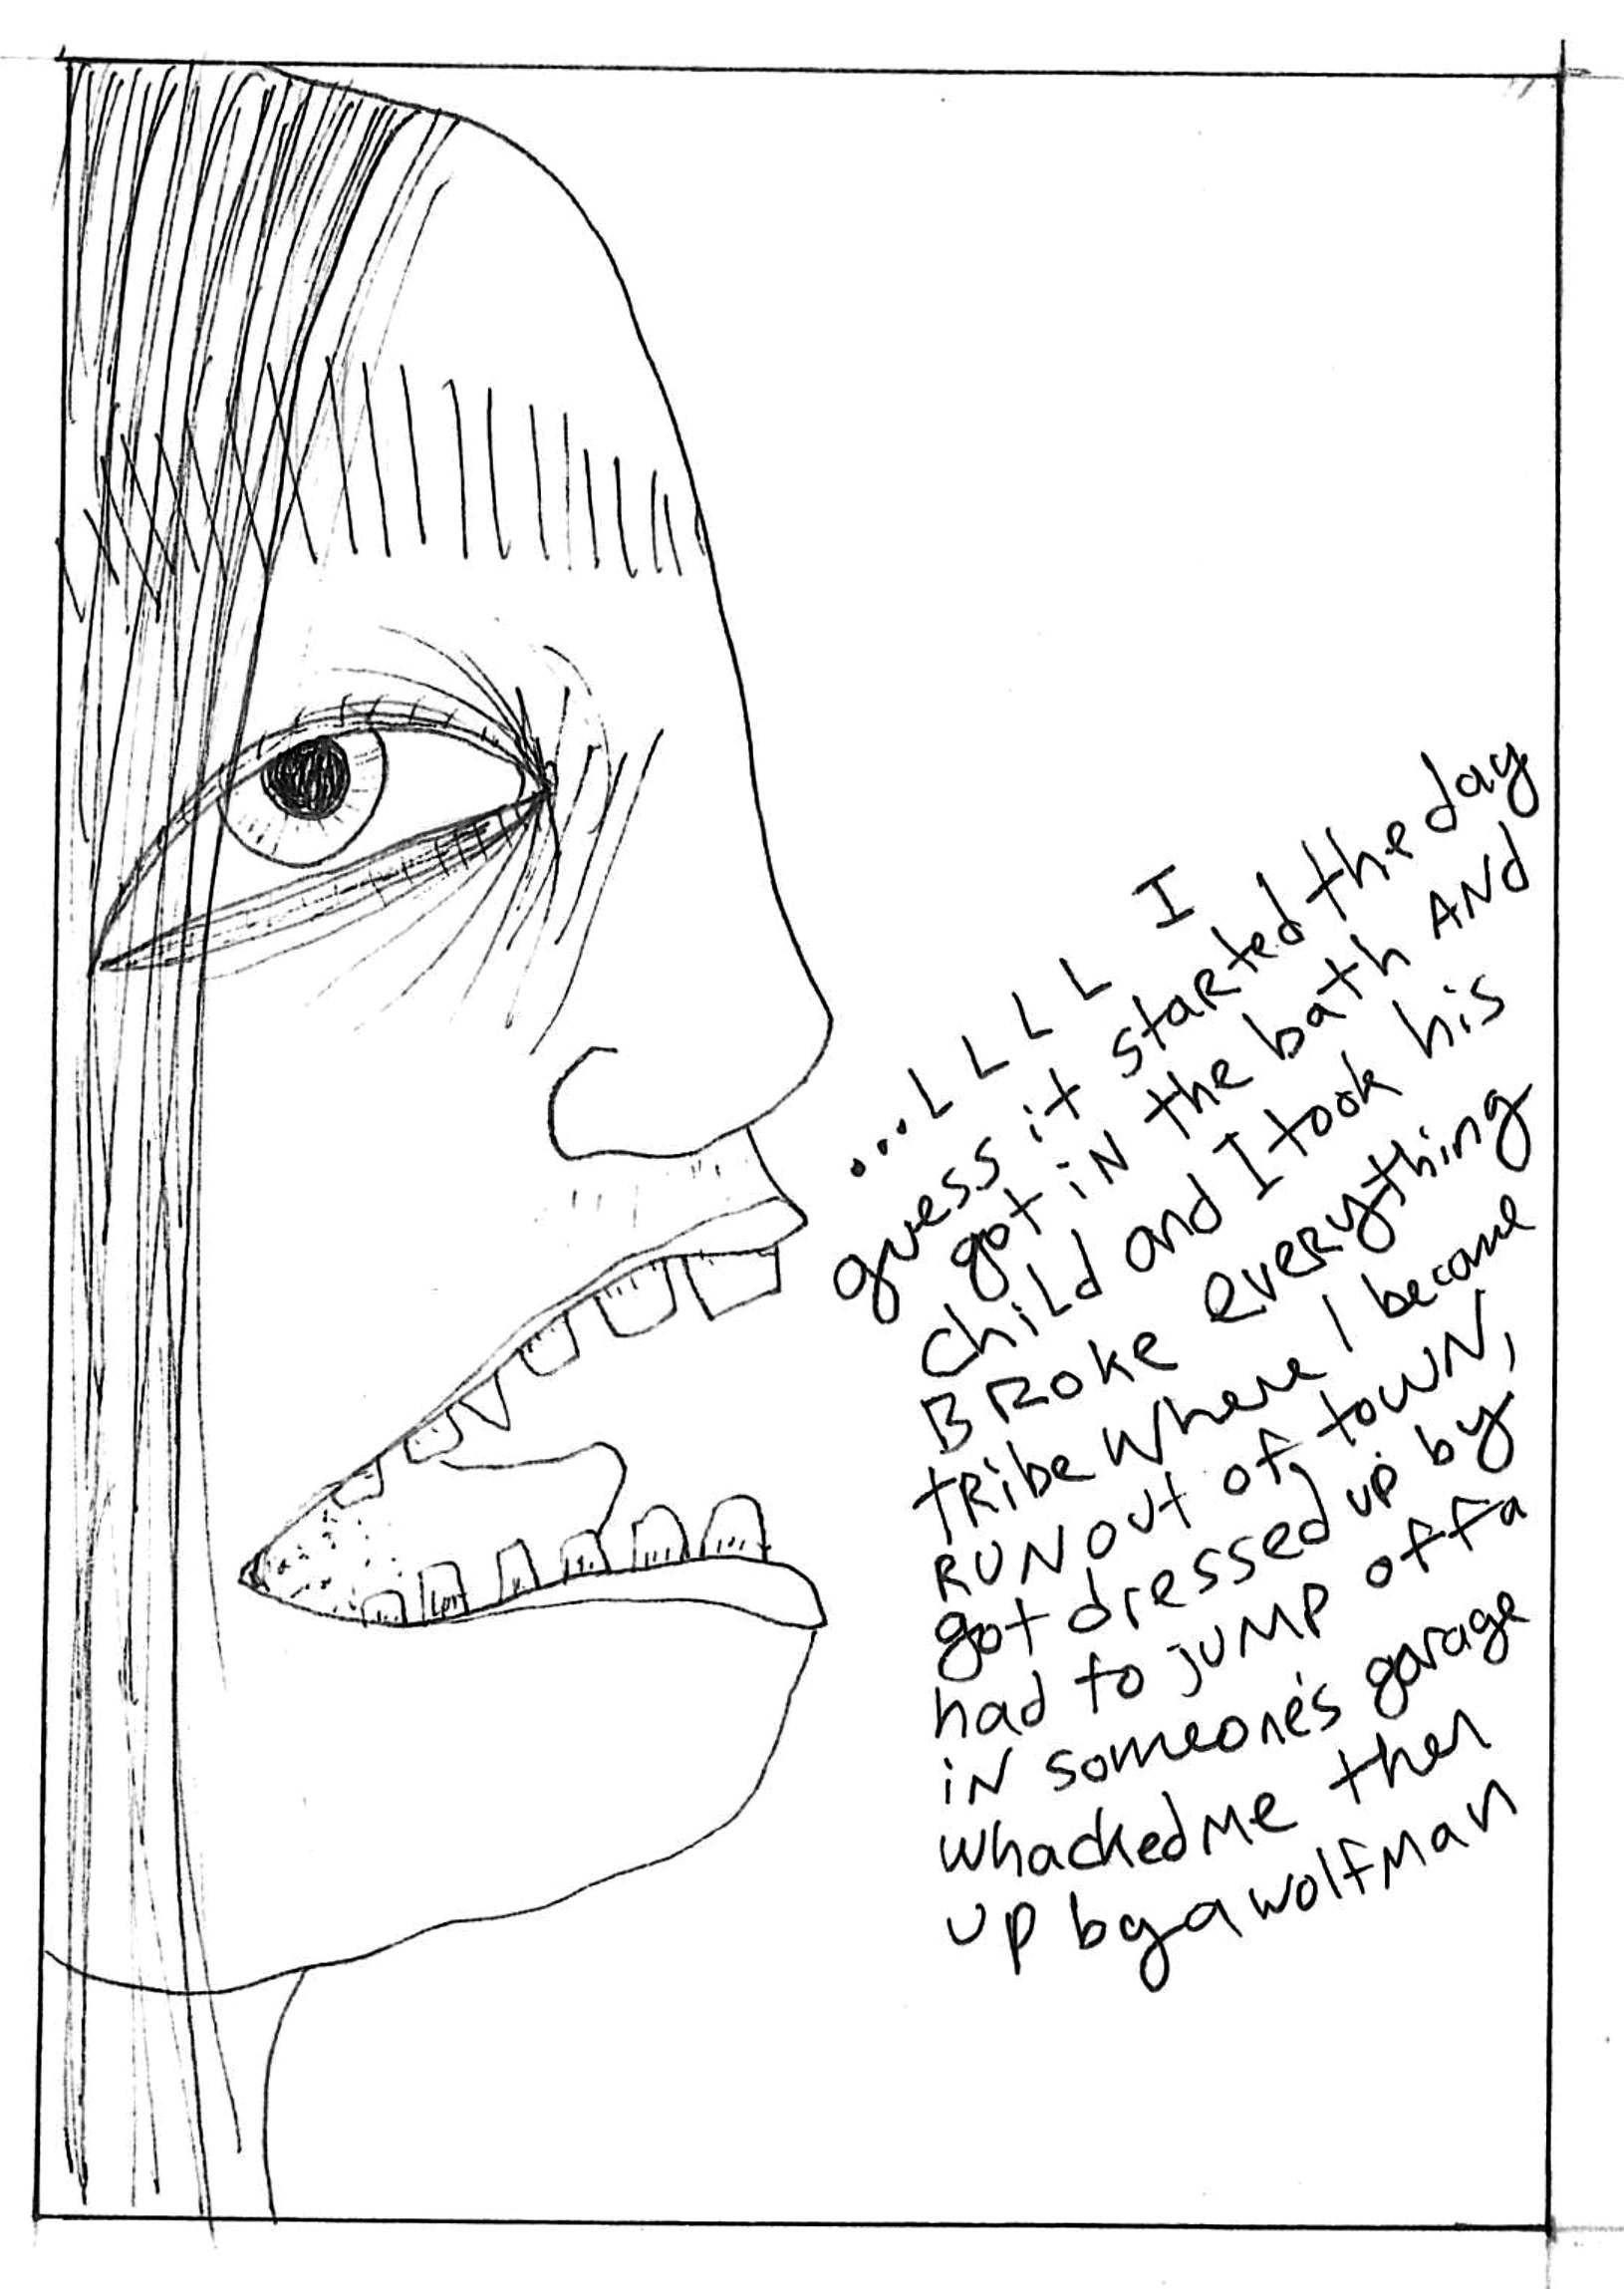 ...L L L L I
guess it started the day
got iN the bath ANd
child and I took his
BRoKe eveRything
tRibe where I became
RUN out of toWN,
got dressed up by
had to jUMP off a
iN someone's garage
whacked Me then
up by a wolfMan